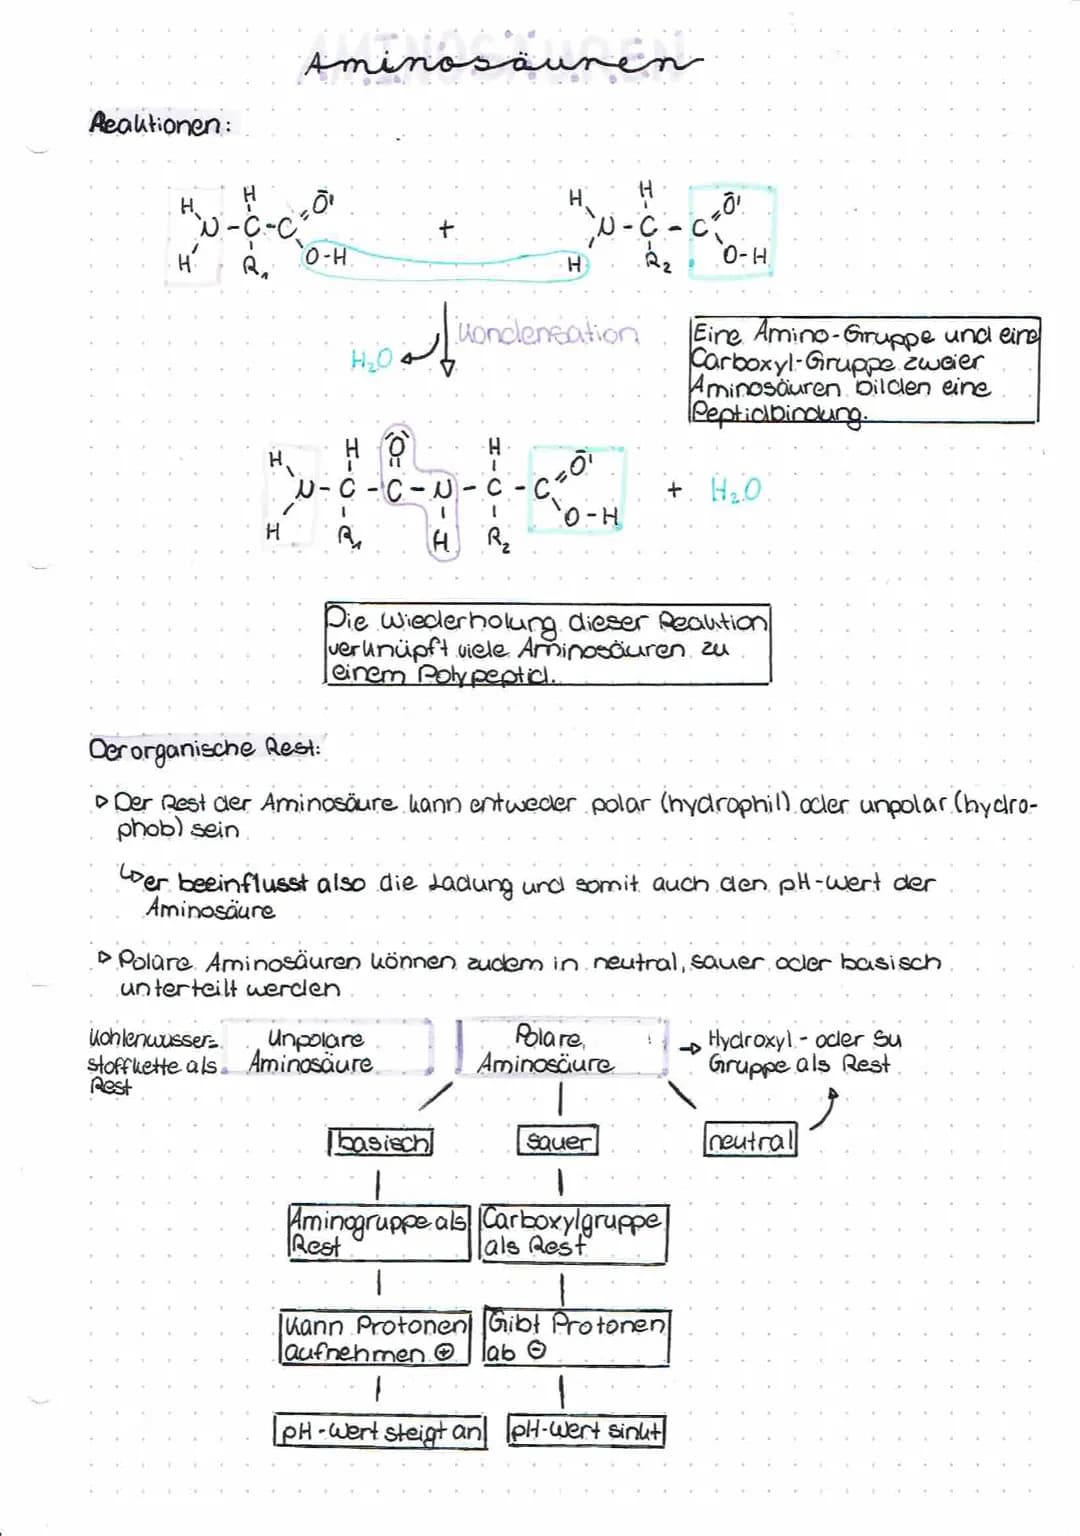 Aminosäuren
Reaktionen:
H H
N-C-C=O
H R1 O-H
+
H H
N-C-C=O
H R2 O-H
Kondensation
H2O
Eine Amino-Gruppe und eine
Carboxyl-Gruppe zweier
Aminosäuren bilden eine
Peptidbindung.
H H O H O
N-C-C-N-C-C
H R1 H R2 O-H
+ H2O
Die Wiederholung dieser Reaktion
verknüpft viele Aminosäuren zu
einem Polypeptid.
Der organische Rest:
▷ Der Rest der Aminosäure kann entweder polar (hydrophil) oder unpolar (hydro-
phob) sein
↳ er beeinflusst also die Ladung und somit auch den pH-Wert der
Aminosäure
▷ Polare Aminosäuren können zudem in neutral, sauer oder basisch
unterteilt werden
Kohlenwasser-
stoffkette als
Rest
Unpolare
Aminosäure
Polare
Aminosäure
→ Hydroxyl- oder Su
Gruppe als Rest
basisch
sauer
neutral
Aminogruppe als
Rest
Carboxylgruppe
als Rest
Kann Protonen
aufnehmen ⊕
Gibt Protonen
ab ⊖
pH-Wert steigt an
pH-Wert sinkt